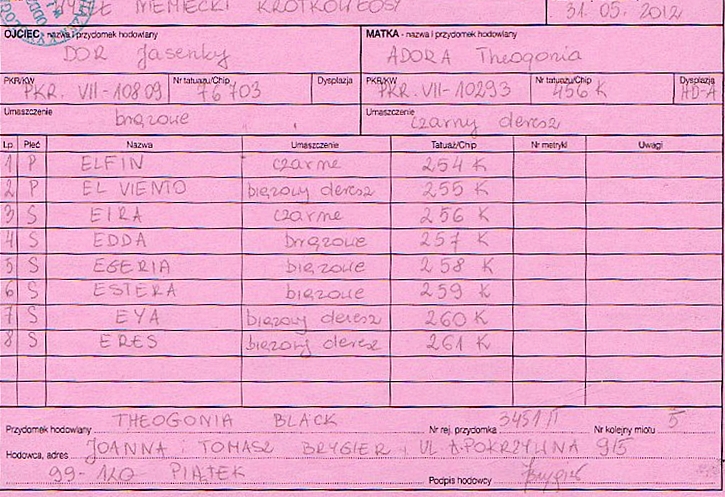 NIEMIECKI KRÓTKOWŁOSY
31.05.2012
OJCIEC - nazwa i przydomek hodowlany
DOR Jasenky
MATKA - nazwa i przydomek hodowlany
ADORA Theogonia
PKR/KW PKR. VII-10809 Nr tatuażu/Chip 76703 Dysplazja
PKR/KW PKR. VII-10293 Nr tatuażu/Chip 456K Dysplazja HD-A
Umaszczenie brązowe
Umaszczenie czarny deresz
Lp. Płeć Nazwa Umaszczenie Tatuaż/Chip Nr metryki Uwagi
1 P ELFIN czarne 254 K
2 P EL VIENTO brązowy deresz 255 K
3 S EIRA czarne 256 K
4 S EDDA brązowe 257 K
5 S EGERIA brązowe 258 K
6 S ESTERA brązowe 259 K
7 S EYA brązowy deresz 260 K
8 S ERES brązowy deresz 261 K
Przydomek hodowlany THEOGONIA BLACK Nr rej. przydomka 3451/I Nr kolejny miotu 5
Hodowca, adres JOANNA i TOMASZ BRYGIER, UL POKRZYWNA 9/5
99-120 PIĄTEK Podpis hodowcy